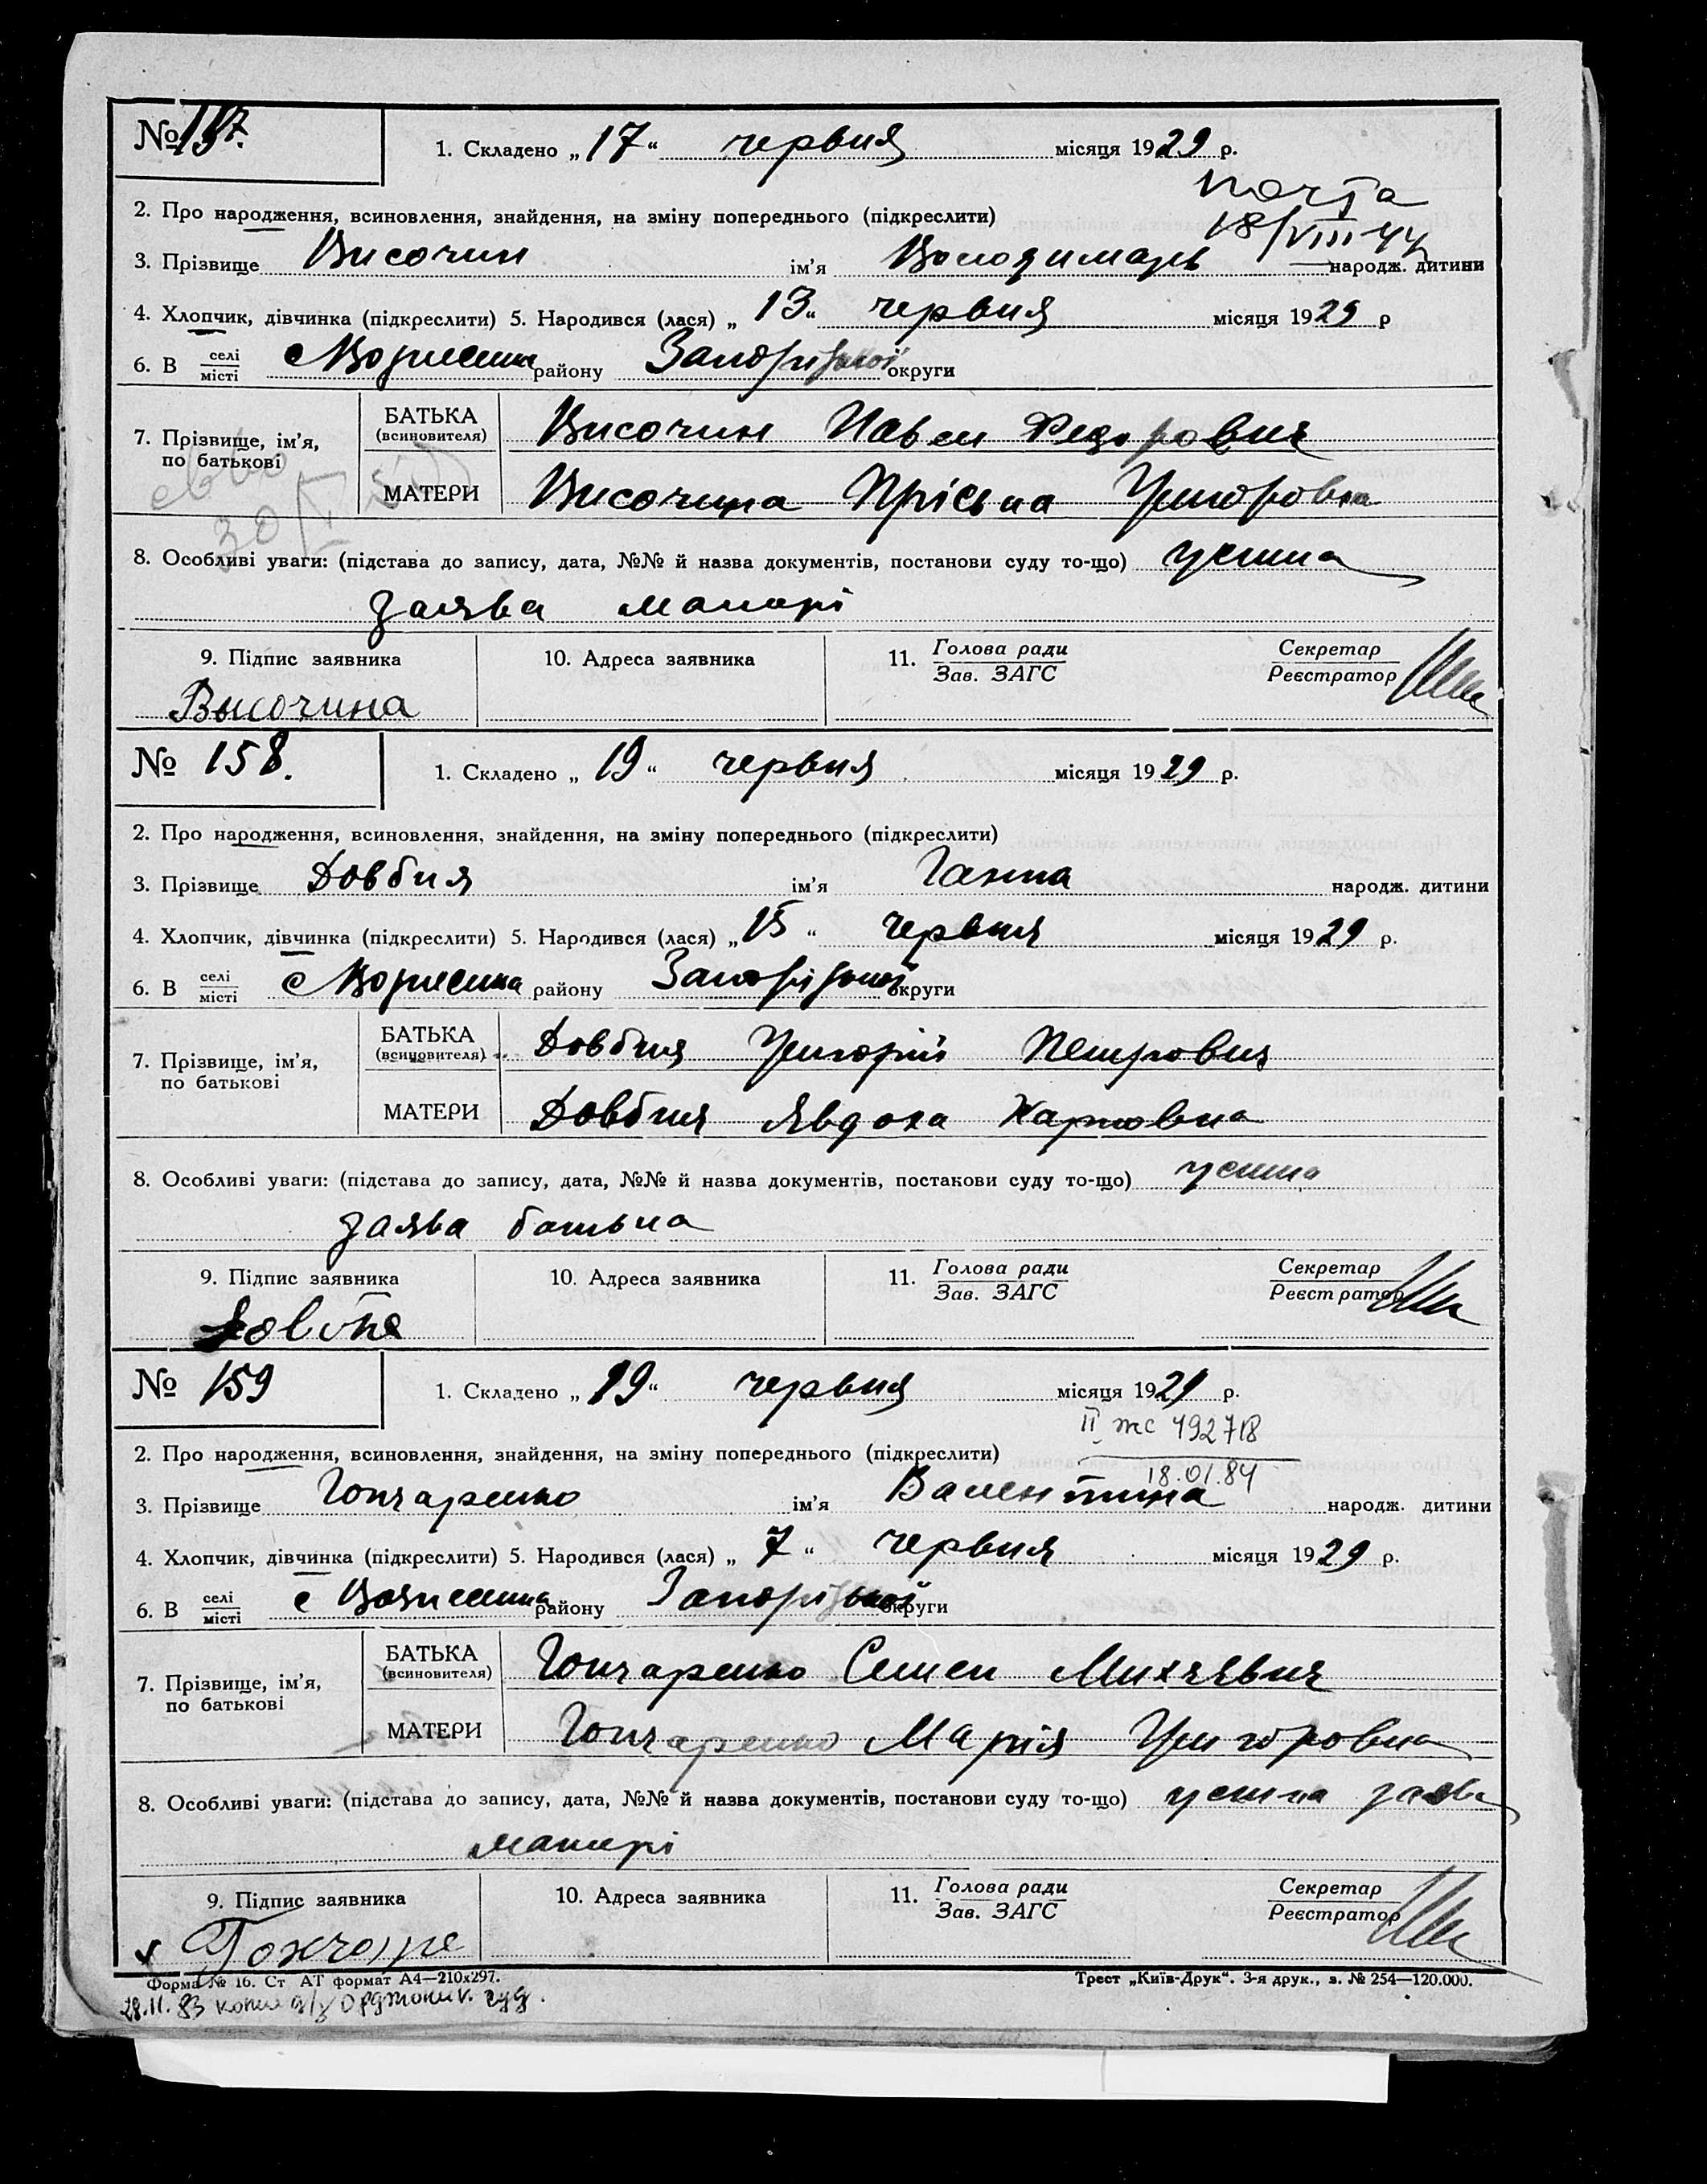 № 157.
1. Складено „ 17 “ червня місяця 1929 р.
почта
2. Про народження, всиновлення, знайдення, на зміну попереднього (підкреслити)
18/VIII-44
3. Прізвище Височин ім’я Володимарь народж. дитини
4. Хлопчик, дівчинка (підкреслити) 5. Народився (лася) „ 13 “ червня місяця 1929 р
6. В селі місті с району Запорізької округи
7. Прізвище, ім’я, по батькові
БАТЬКА (всиновителя) Височин Павел Федорович
МАТЕРИ Височина Грігоровна
30
8. Особливі уваги: (підстава до запису, дата, №№ й назва документів, постанови суду то-що) устна
заява матирі
9. Підпис заявника 10. Адреса заявника 11. Голова ради Зав. ЗАГС Секретар Реєстратор
Высочина
№ 158.
1. Складено „ 19 “ червня місяця 1929 р.
2. Про народження, всиновлення, знайдення, на зміну попереднього (підкреслити)
3. Прізвище Довбня ім’я Ганна народж. дитини
4. Хлопчик, дівчинка (підкреслити) 5. Народився (лася) „ 15 “ червня місяця 1929 р.
6. В селі місті с району Запорізької округи
7. Прізвище, ім’я, по батькові
БАТЬКА (всиновителя) Довбня Григорій Петрович
МАТЕРИ Довбня Явдоха Карповна
8. Особливі уваги: (підстава до запису, дата, №№ й назва документів, постакови суду то-що) устна
заява батька
9. Підпис заявника 10. Адреса заявника 11. Голова ради Зав. ЗАГС Секретар Реєстратор
№ 159
1. Складено „ 19 “ червня місяця 1929 р.
II жс 492718
2. Про народження, всиновлення, знайдення, на зміну попереднього (підкреслити)
18.01.84
3. Прізвище Гончаренко ім’я Валентина народж. дитини
4. Хлопчик, дівчинка (підкреслити) 5. Народився (лася) „ 7 “ червня місяця 1929 р.
6. В селі місті с Вознесенка району Запорізької округи
7. Прізвище, ім’я, по батькові
БАТЬКА (всиновителя) Гончаренко Семен
МАТЕРИ Гончаренко Марія Григоровна
8. Особливі уваги: (підстава до запису, дата, №№ й назва документів, постанови суду то-що) устна заява
матирі
9. Підпис заявника 10. Адреса заявника 11. Голова ради Зав. ЗАГС Секретар Реєстратор
Форма № 16. Ст АТ формат А4—210х297. Трест „Київ-Друк“. 3-я друк., з. № 254—120.000.
28.11.83 копия д/з Орджоник. суд.